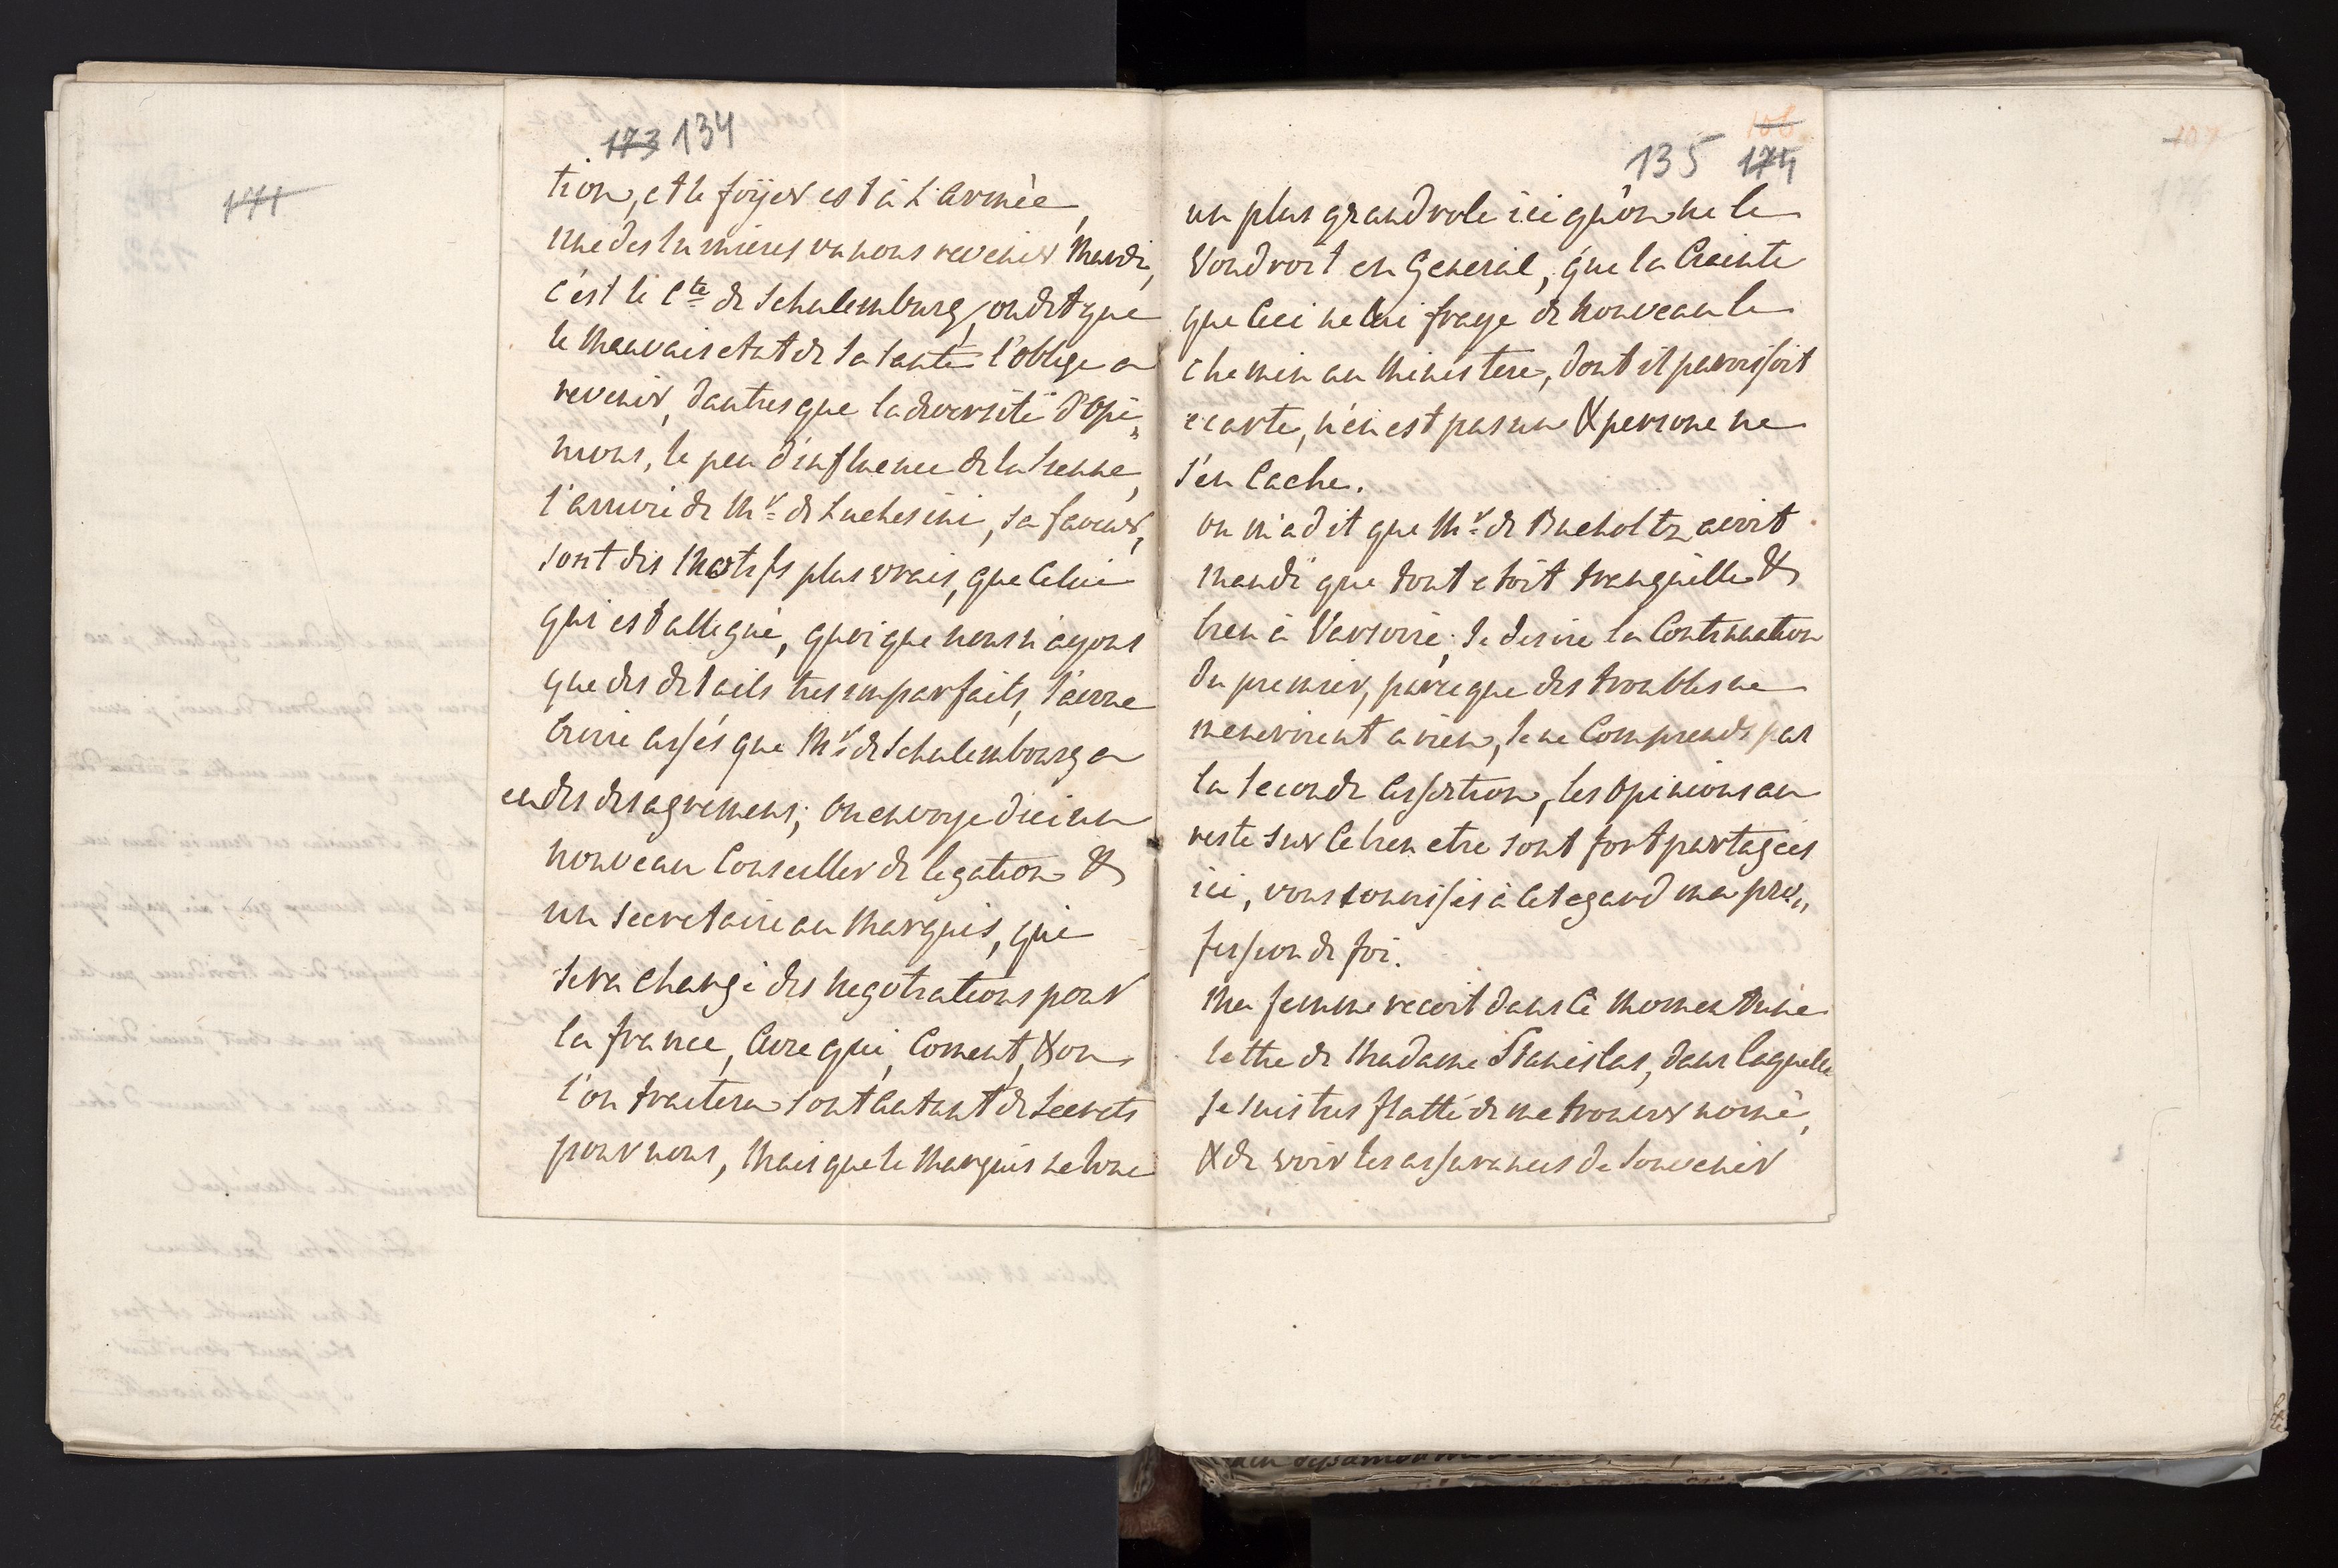 171
173 134
tion, et le foÿer est à L'armèe,
une des lumieres va nous revenir Mardi,
c'est le Cte de Schulemburg, on dit que
le Mauvais etat de sa santé l'oblige a
revenir, d'autres que la diversité d'Opi„
nions, le peu d'influence de la sienne,
l'arrivé de Mr de Luchesini, sa faveur,
sont des Motifs plus vrais, que Celui
qui est allegué, quoique nous n'ayons
que des details tres imparfaits, J'aime
Croire assés que Mr de Schulembourg a
eu des desagremens; On envoye d'ici un
nouveau Conseiller de legation &
un secretaire au Marquis, qui
sera Chargé des negotiations pour
la france, avec qui, Coment, & ou
l'on traitera sont autant de secrets
pour nous, Mais que le Marquis ne Joue
106
135 174
un plus grand role ici qu'on ne le
Voudroit en General, que la Crainte
que Ceci ne lui fraye de Nouveau le
chemin au Ministere, dont il paroissoit
ecarté, n'en est pas une & persone ne
s'en Cache.
on m'a dit que Mr de Bucholtz avoit
mandé que tout etoit tranquille &
bien à Varsovie; Je desire la Continuation
du premier, parceque des troubles ne
meneroient a rien, Je ne Comprends pas
la seconde assertion, les Opinions au
reste sur le bien etre sont fort partagées
ici, vous connoissés à Cet egard ma pro„
fession de foi.
Ma femme recoit dans Ce Moment une
lettre de Madame Stanislas, dans laquelle
Je suis tres flatté de me trouver nomé,
& de voir les assurances de Souvenir
107